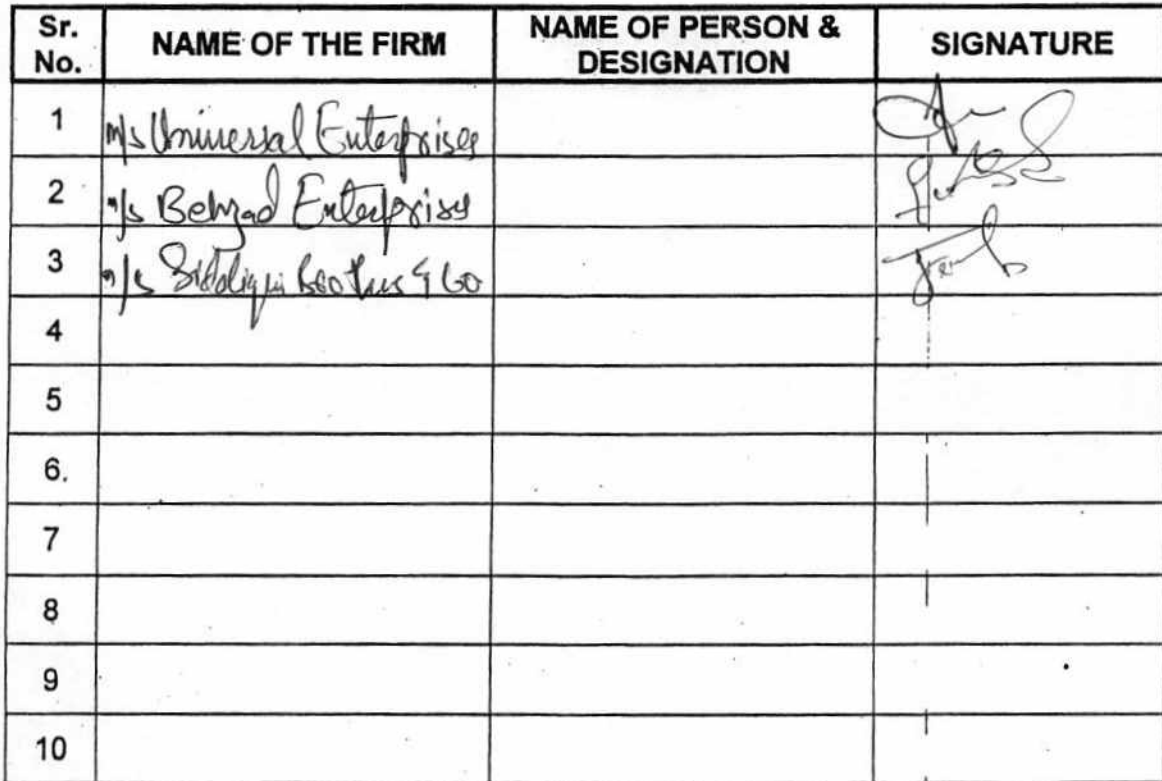 Sr. No. NAME OF THE FIRM NAME OF PERSON & DESIGNATION SIGNATURE
1 M/s Universal Enterprises
2 M/s Behzad Enterprises
3 M/s Siddiqui Brothers & Co
4
5
6.
7
8
9
10